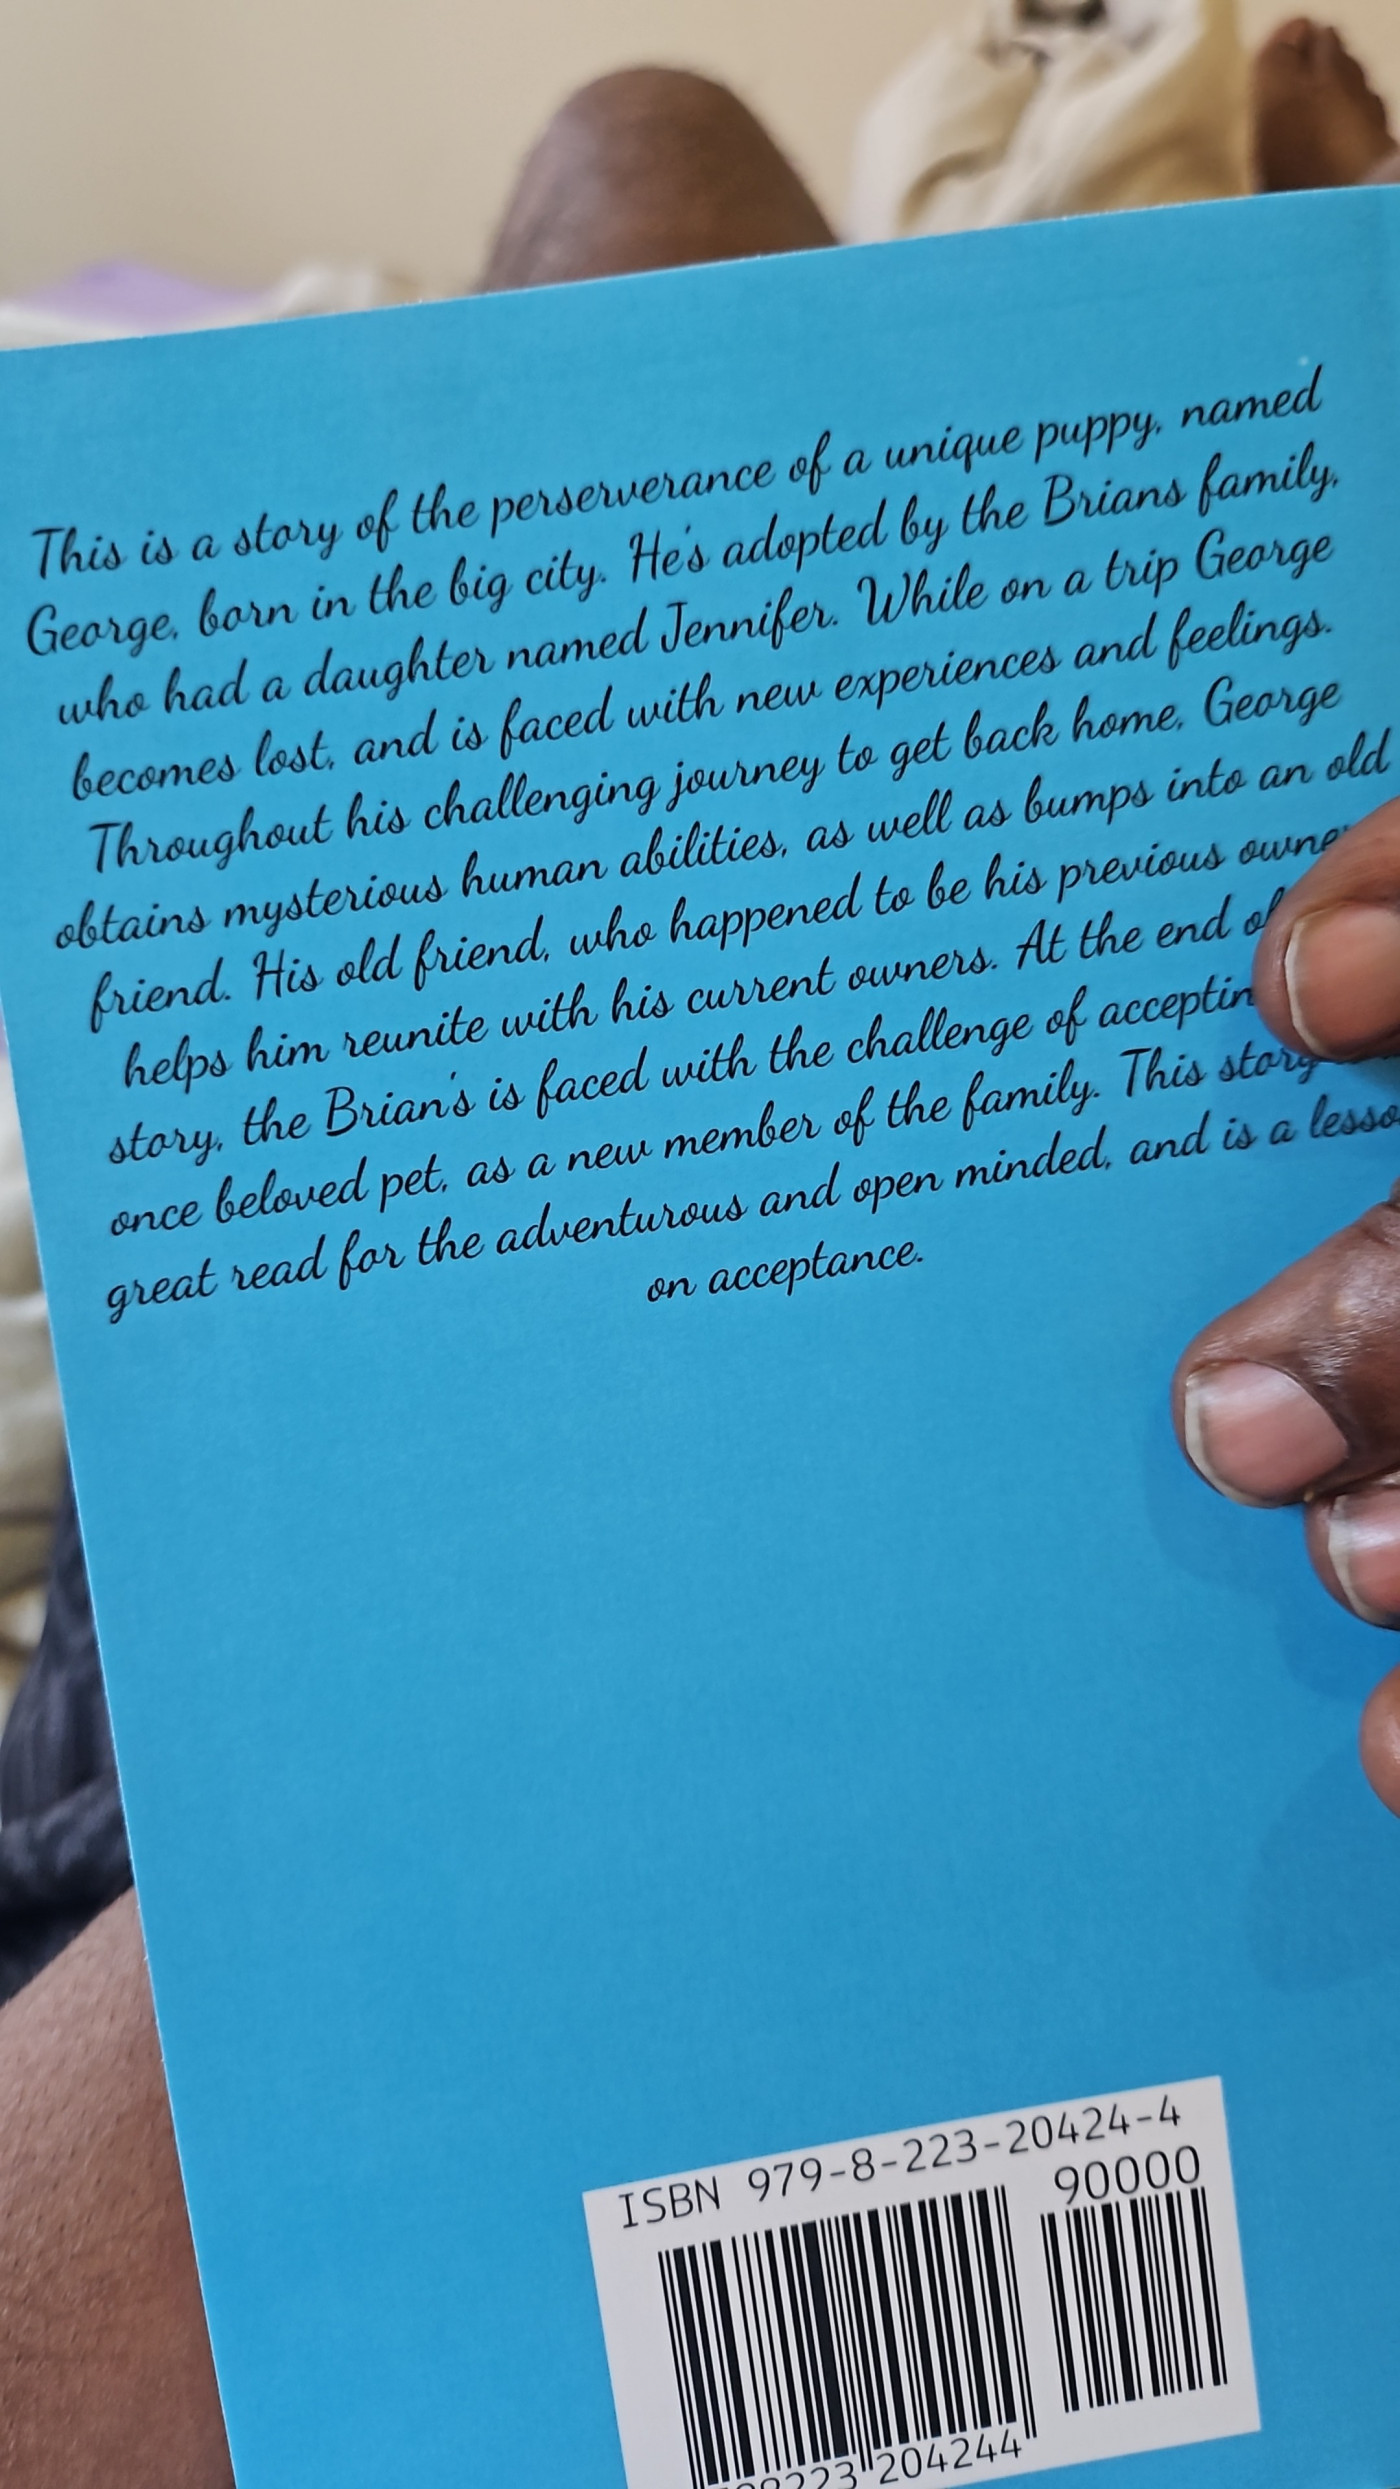 This is a story of the perserverance of a unique puppy, named
George, born in the big city. He's adopted by the Brians family,
who had a daughter named Jennifer. While on a trip George
becomes lost, and is faced with new experiences and feelings.
Throughout his challenging journey to get back home, George
obtains mysterious human abilities, as well as bumps into an old
friend. His old friend, who happened to be his previous
helps him reunite with his current owners. At the end
story, the Brian's is faced with the challenge of
once beloved pet, as a new member of the family. This story
great read for the adventurous and open minded, and is a
on acceptance.
ISBN 979-8-223-20424-4
90000
204244